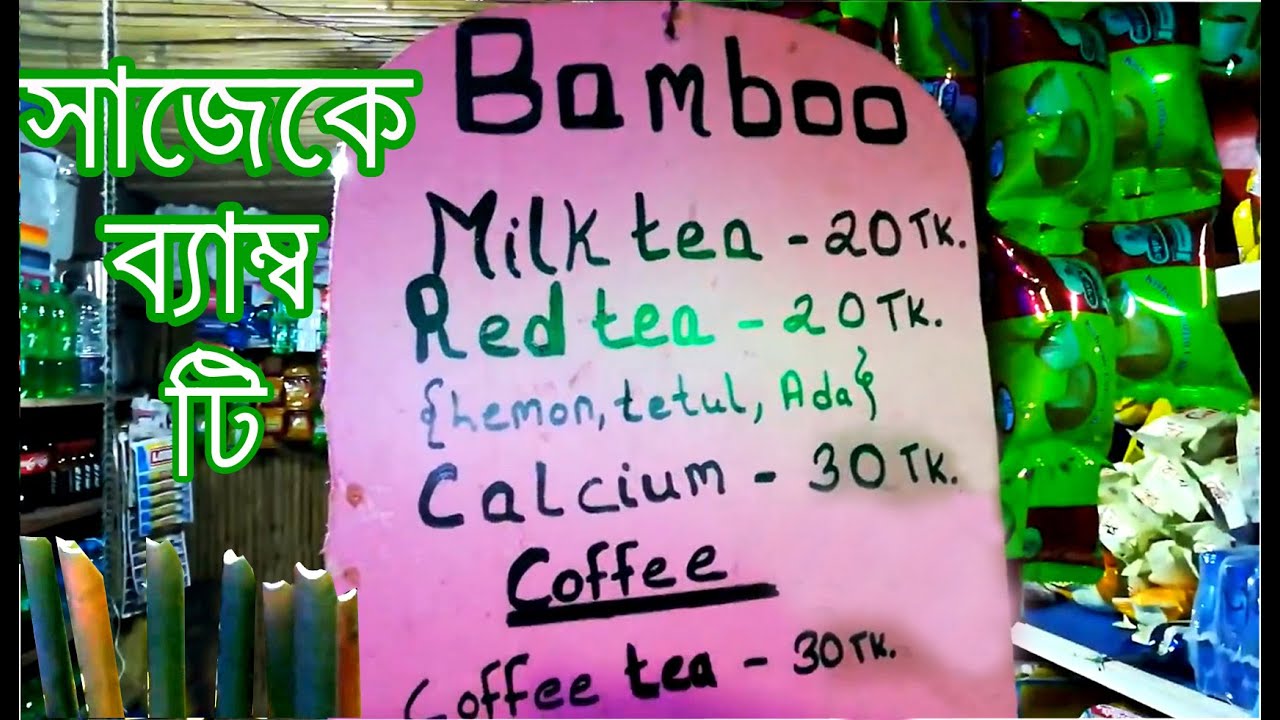 সাজেকে
ব্যাম্ব
টি
Bamboo
Milk tea - 20 TK.
Red tea - 20 TK.
{Lemon, tetul, Ada}
Calcium - 30 TK.
Coffee
Coffee tea - 30 TK.